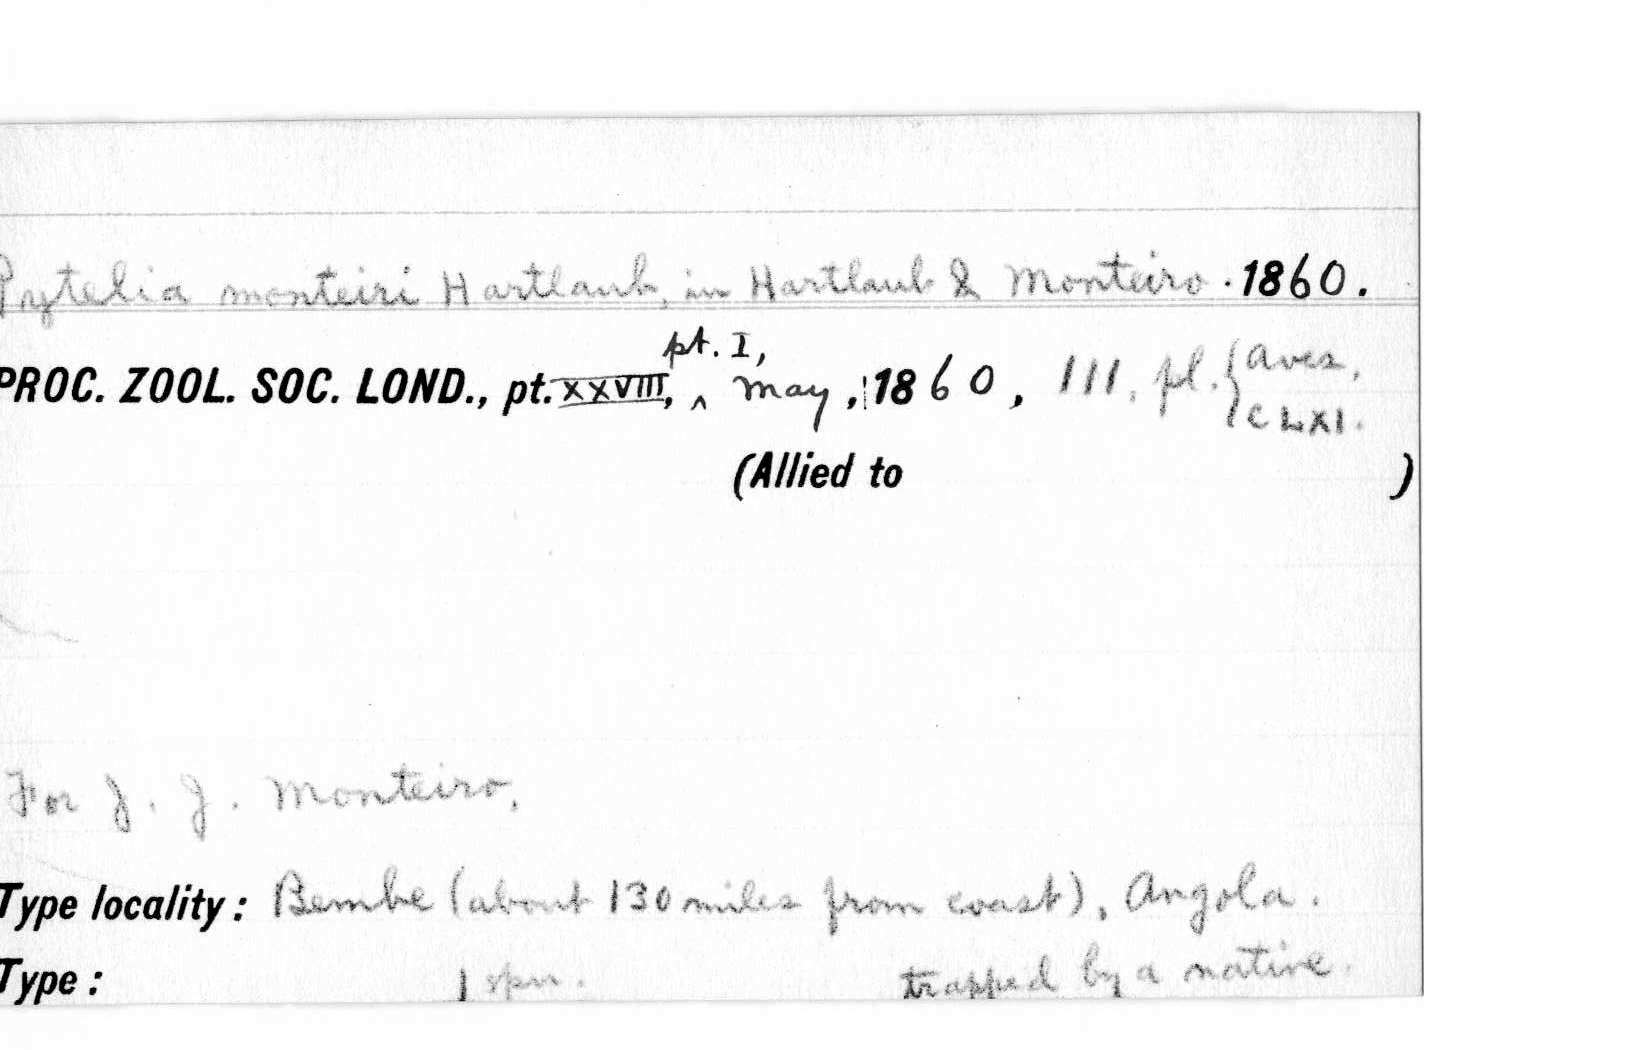 Pytelia monteiri Hartlaub, in Hartlaub & Monteiro. 1860.
pt. I,
PROC. ZOOL. SOC. LOND., pt. XXVIII, ^ May, 1860, 111, pl. { Aves,
CLXI.
(Allied to )
For J. J. Monteiro.
Type locality: Bembe (about 130 miles from coast), Angola.
Type: 1 spm. trapped by a native.